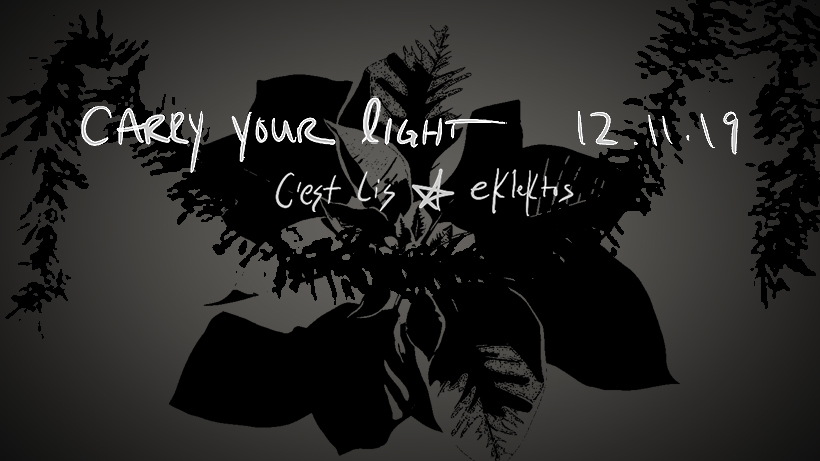 CARRY YOUR LIGHT 12.11.19
C'est Lis ☆ eklektos